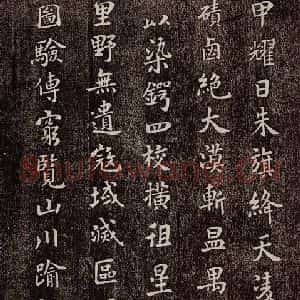 甲耀日朱旗絳天陵
磧鹵絕大漠斬昷禺
以染鍔四校橫徂星
里野無遺寇域滅區
圖驗傳窮覽山川踰